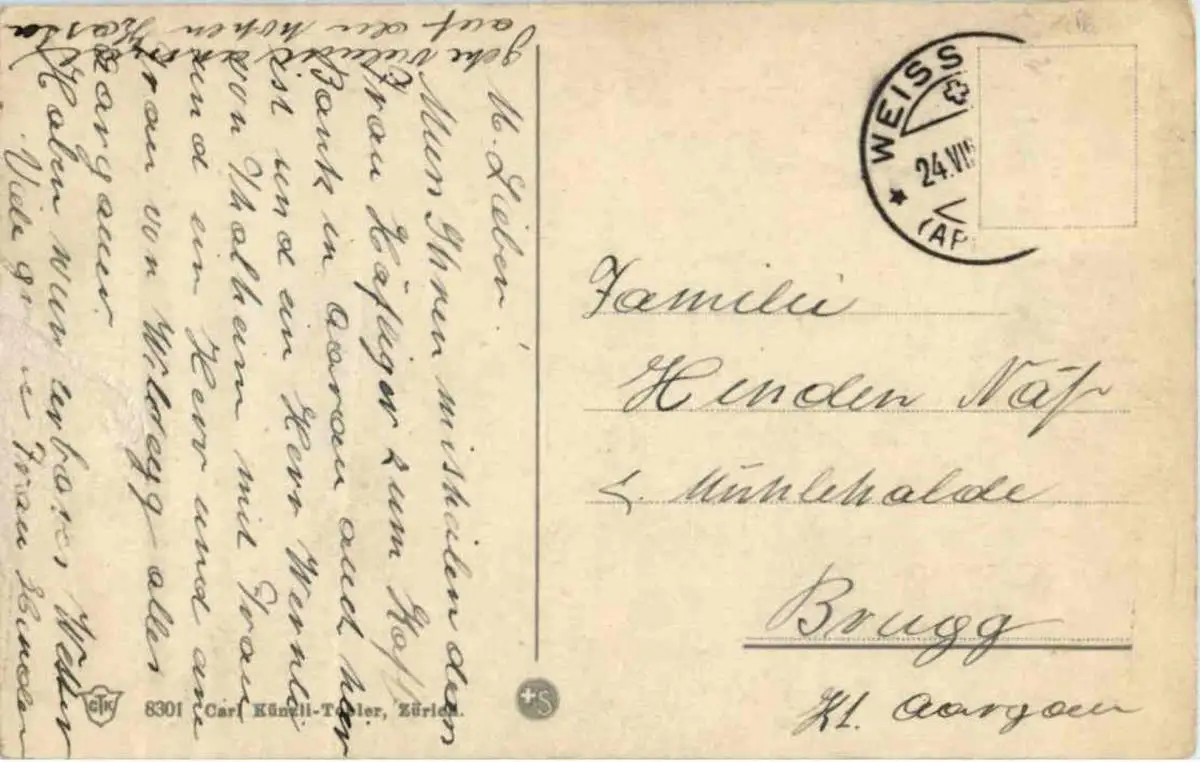 M. Lieben!
Muss Ihnen mitheilen dass
Frau Häfliger zum Hof
Bank in Aarau auch hir
ist und ein Herr Wernli
von Thalheim mit Frau
und ein Herr und eine
Frau von Wildegg alles
Aargauer.
Haben wunderbares Wetter
Viele Frau Hinden
gehe vieleicht
auf den hohen Kasten
WEISS
24.VII
(AP
Familie
Hinden Näf
z. Mühlehalde
Brugg
Kt. Aargau
GTK
8301 Carl Künzli-Tobler, Zürich.
+S